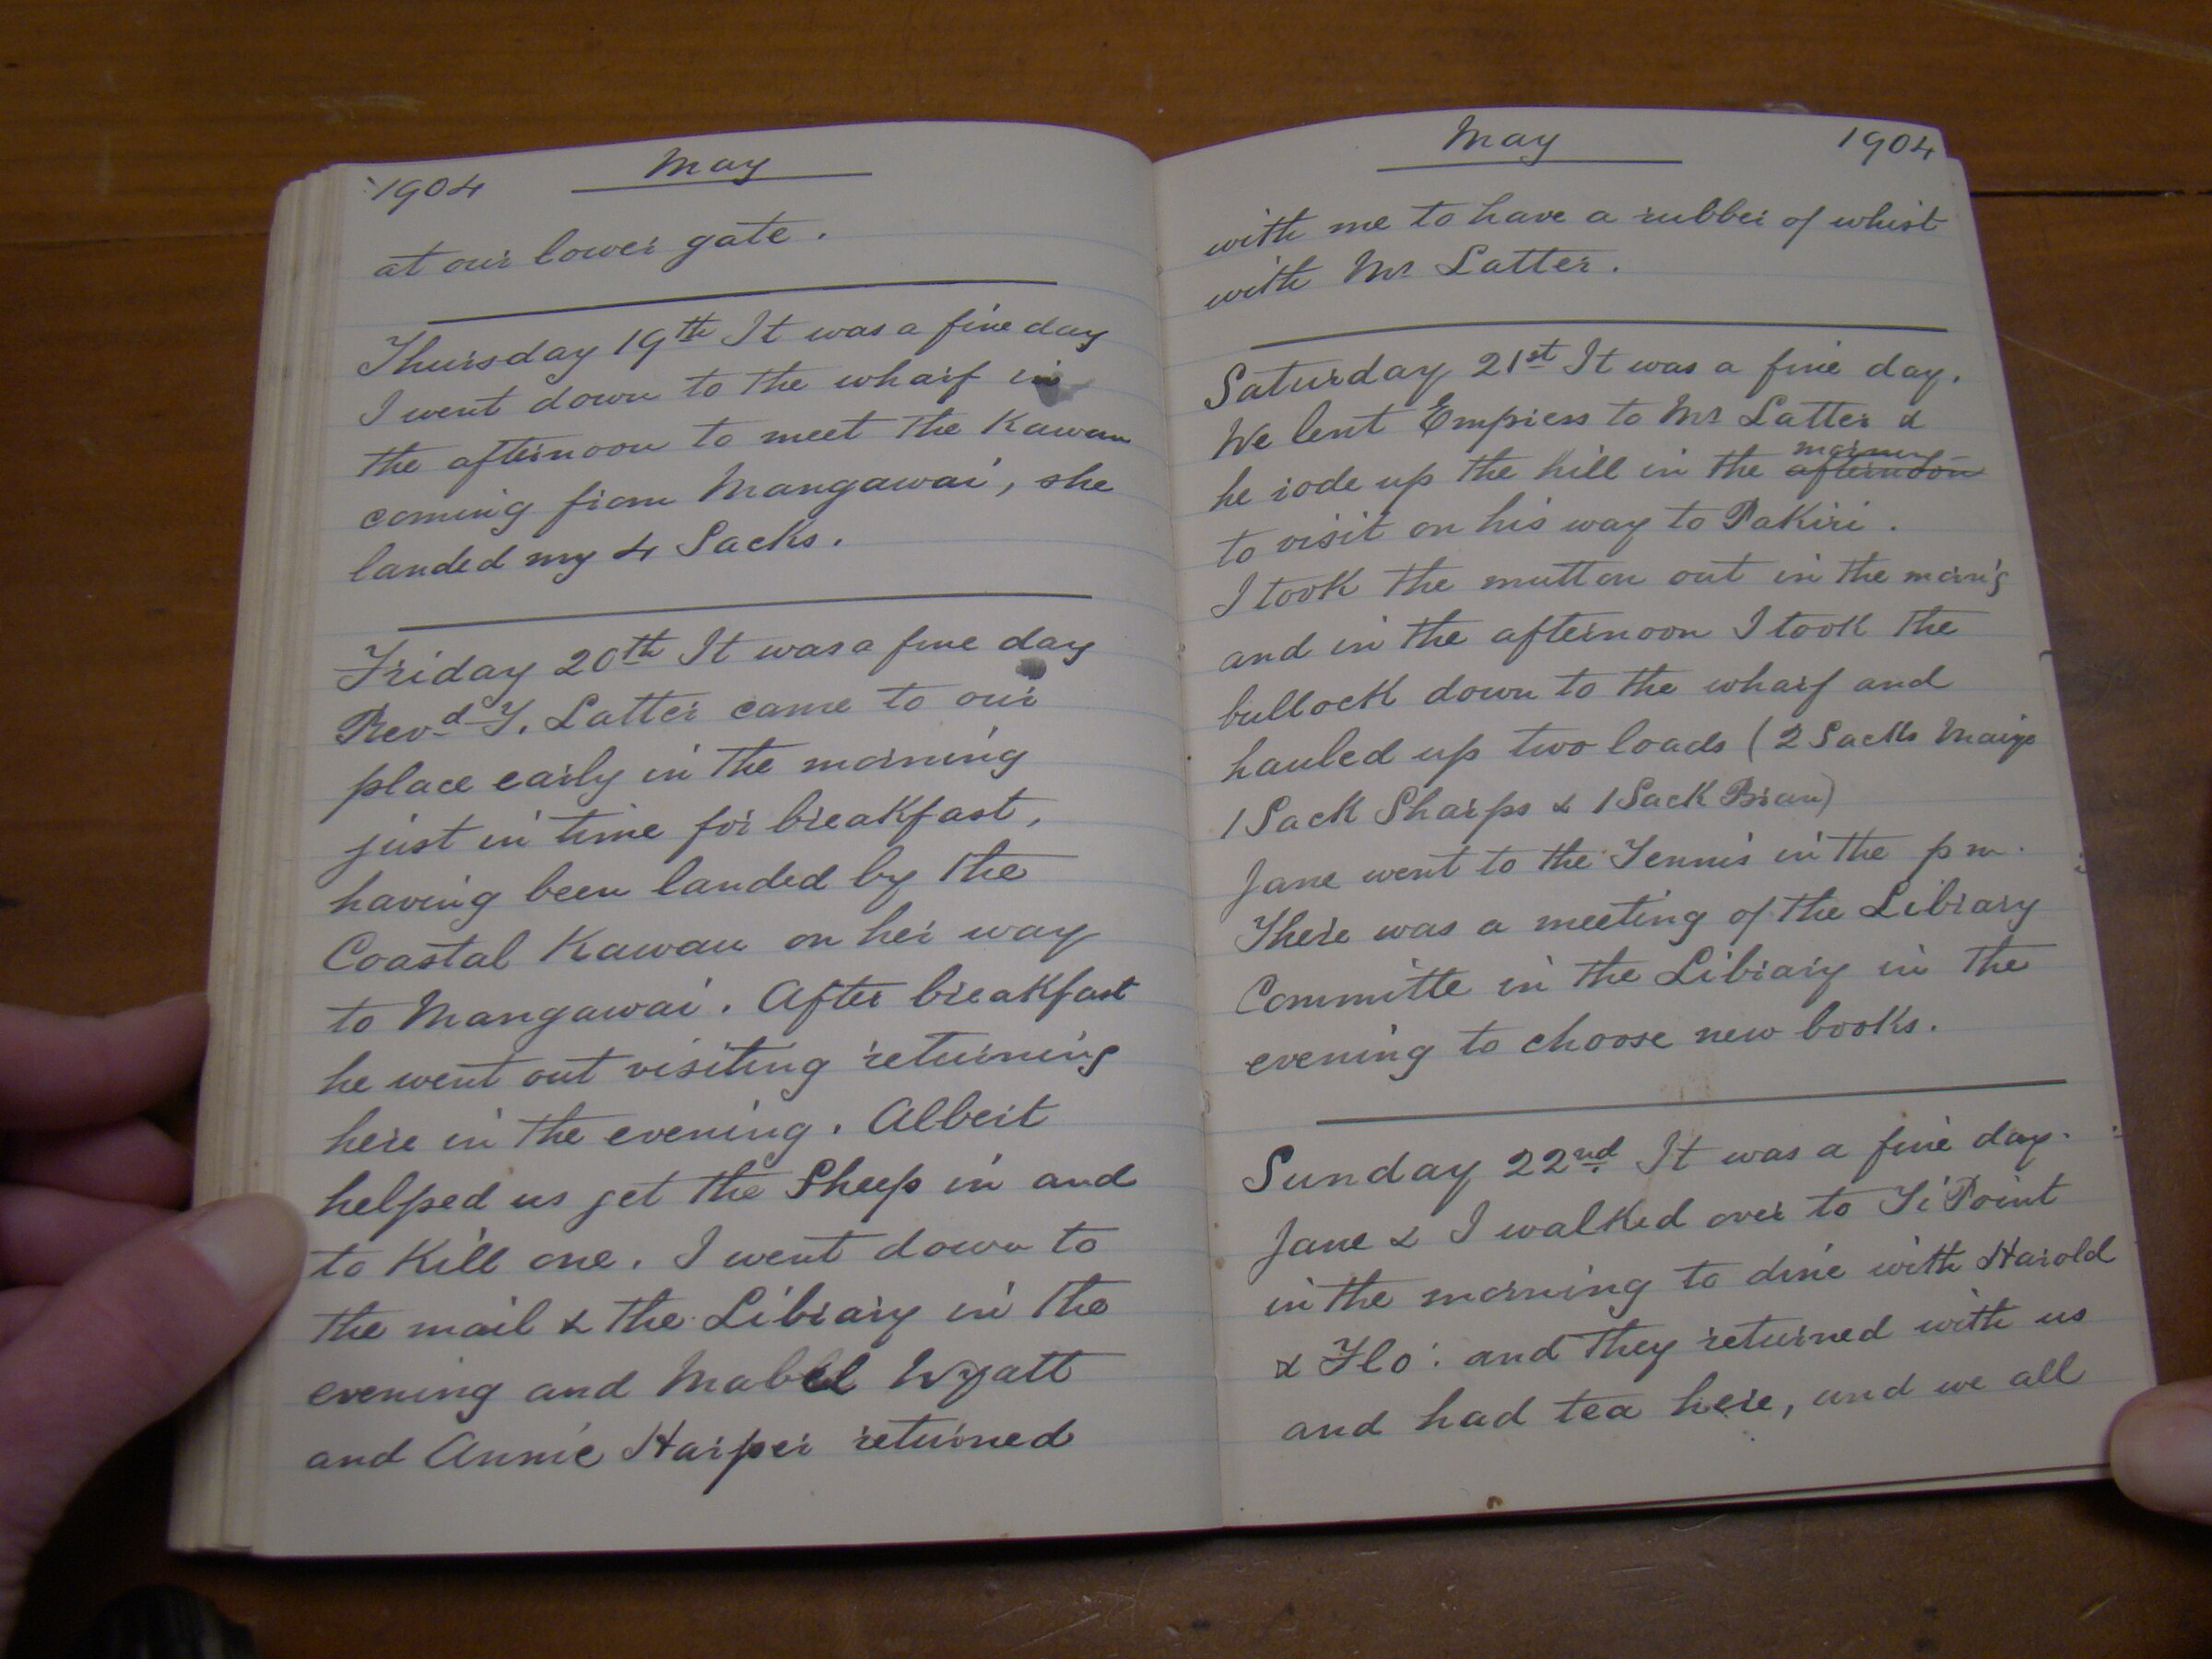 1904 May
at our lower gate.
Thursday 19th It was a fine day
I went down to the wharf in
the afternoon to meet the Kawau
coming from Mangawai, she
landed my 4 Sacks.
Friday 20th It was a fine day
Revd T. Latter came to our
place early in the morning
just in time for breakfast,
having been landed by the
Coastal Kawau on her way
to Mangawai. After breakfast
he went out visiting returning
here in the evening. Albert
helped us get the Sheep in and
to Kill one. I went down to
the mail & the Library in the
evening and Mabel Wyatt
and Annie Harper returned
May 1904
with me to have a rubber of whist
with Mr Latter.
Saturday 21st It was a fine day.
We lent Empress to Mr Latter &
he rode up the hill in the afternoon morning
to visit on his way to Pakiri.
I took the mutton out in the morn'g
and in the afternoon I took the
bullock down to the wharf and
hauled up two loads (2 Sacks Maize
1 Sack Sharps & 1 Sack Bran)
Jane went to the Tennis in the p m.
There was a meeting of the Library
Committe in the Library in the
evening to choose new books.
Sunday 22nd It was a fine day.
Jane & I walked over to Ti Point
in the morning to dine with Harold
& Flo: and they returned with us
and had tea here, and we all